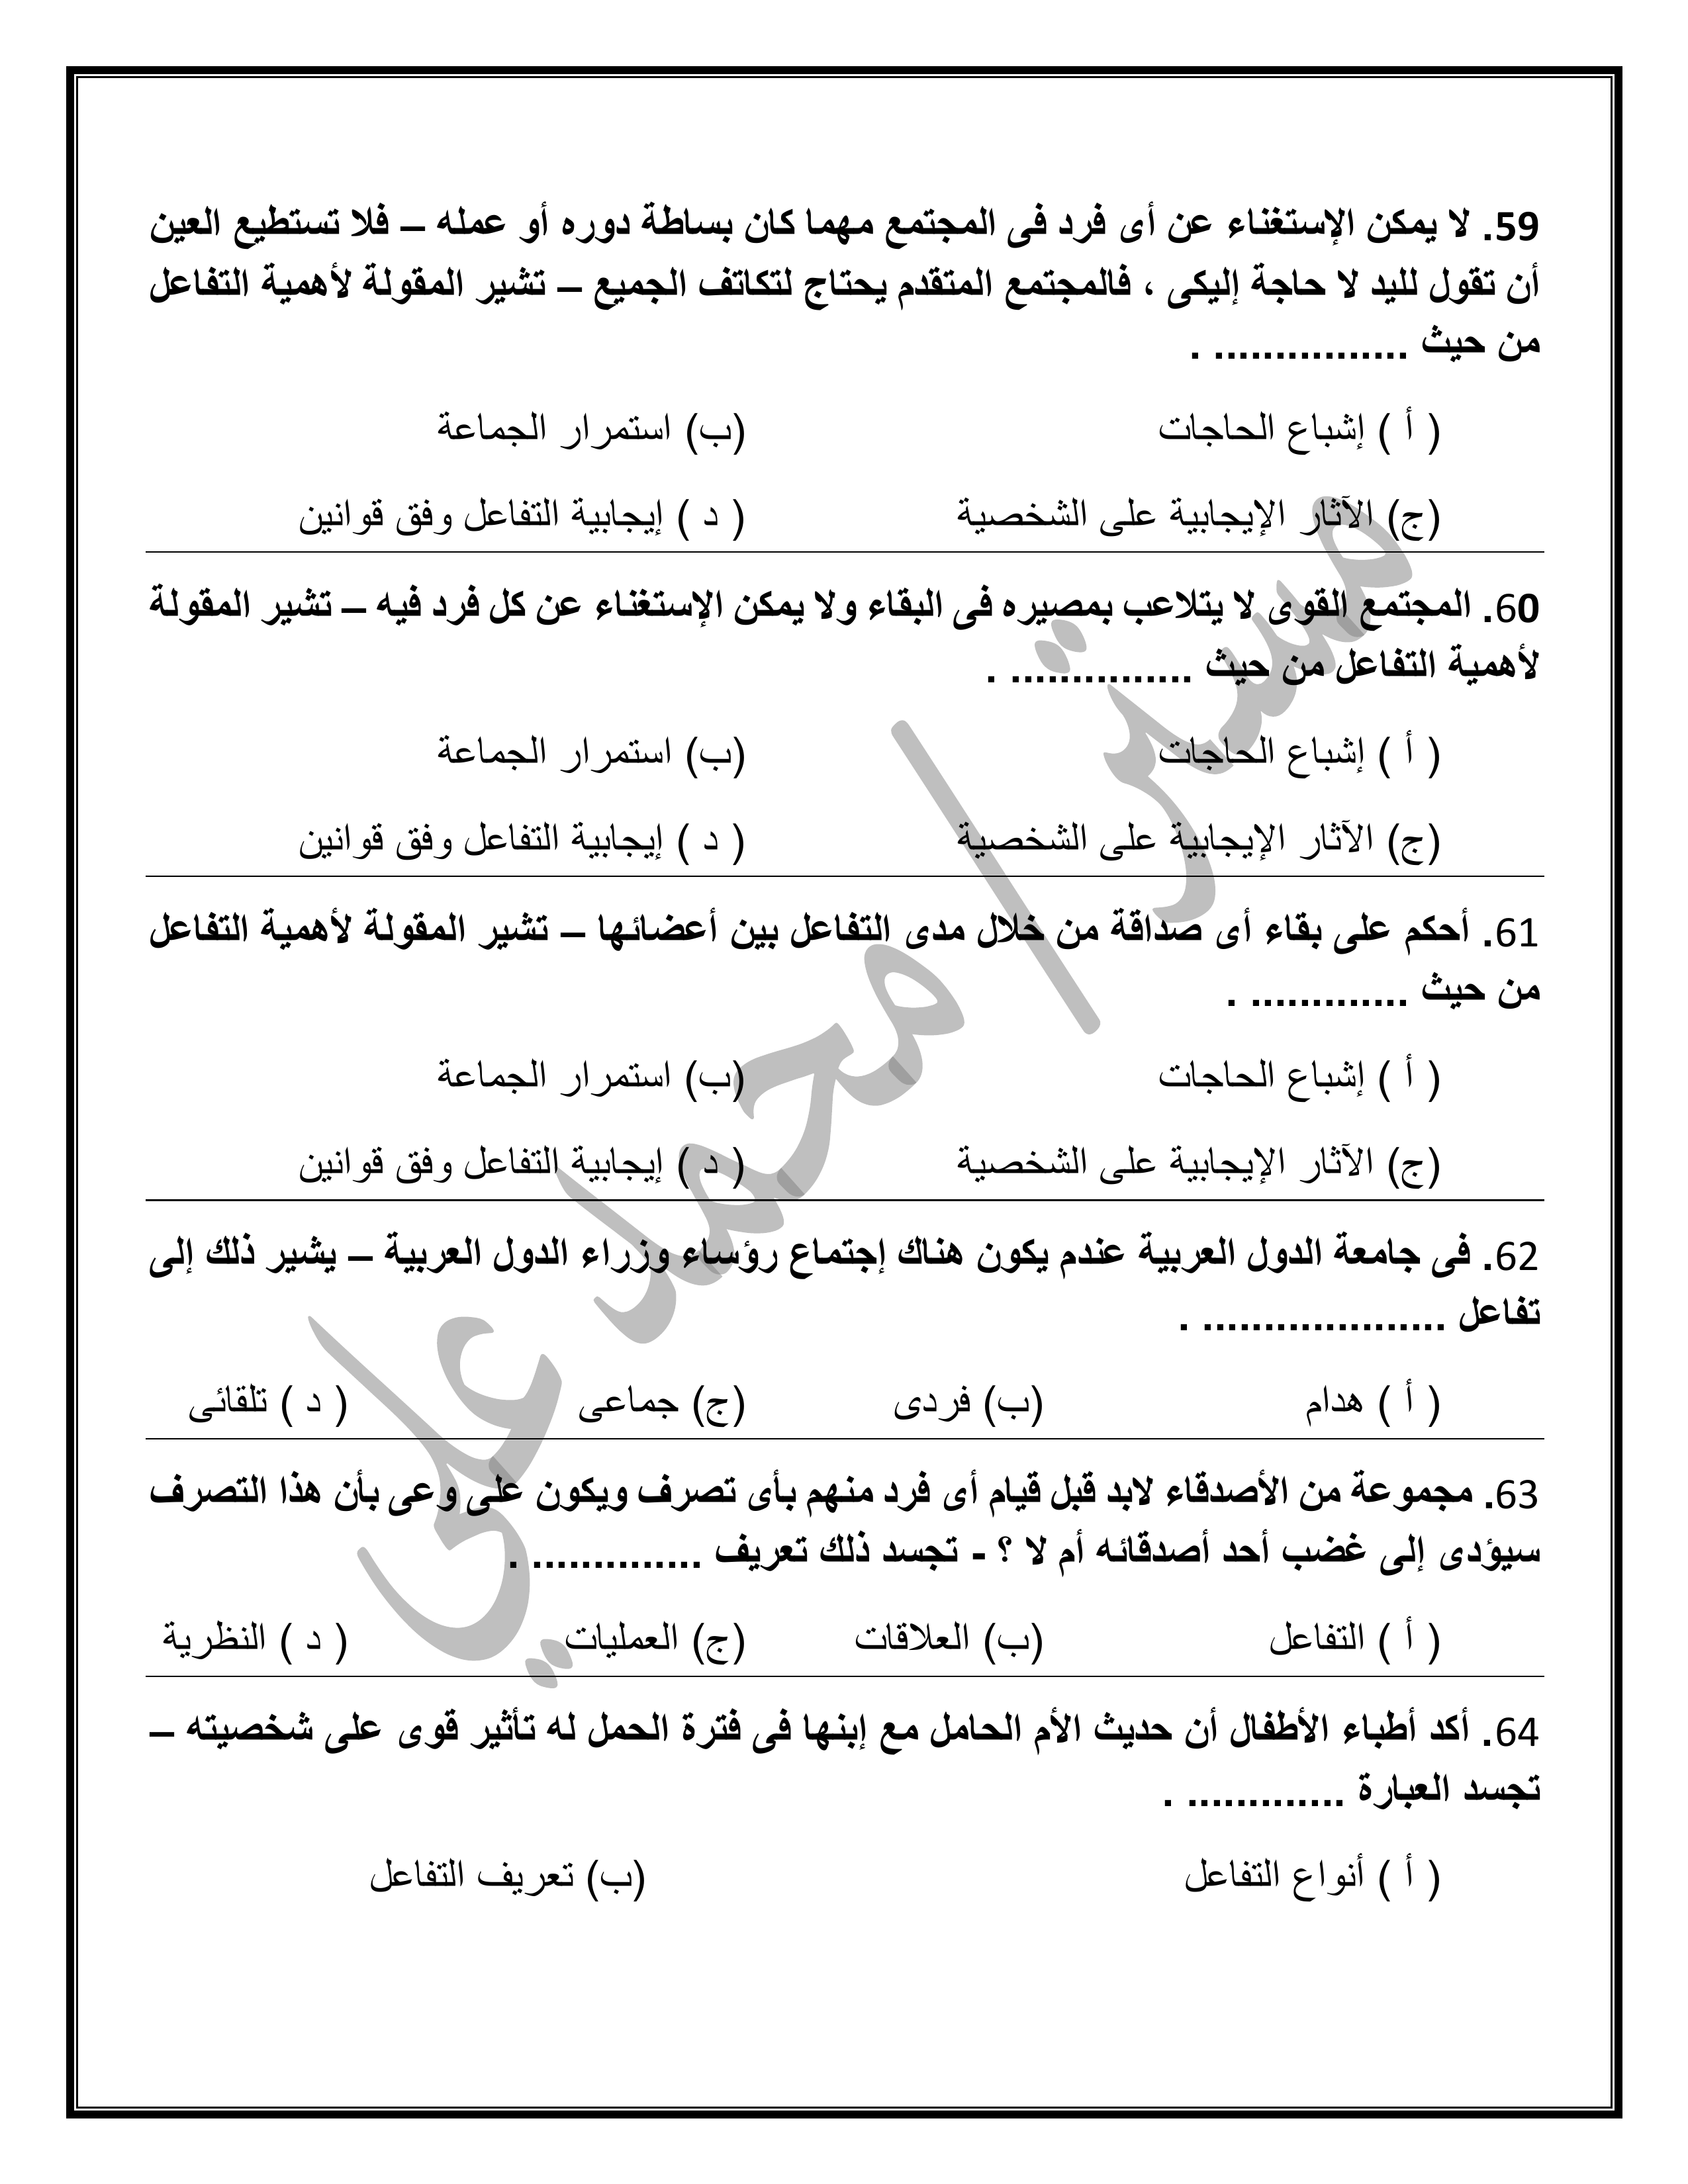 59. لا يمكن الإستغناء عن أى فرد فى المجتمع مهما كان بساطة دوره أو عمله – فلا تستطيع العين
أن تقول لليد لا حاجة إليكى ، فالمجتمع المتقدم يحتاج لتكاتف الجميع – تشير المقولة لأهمية التفاعل
من حيث ................ .
( أ ) إشباع الحاجات (ب) استمرار الجماعة
(ج) الآثار الإيجابية على الشخصية ( د ) إيجابية التفاعل وفق قوانين
60. المجتمع القوى لا يتلاعب بمصيره فى البقاء ولا يمكن الإستغناء عن كل فرد فيه – تشير المقولة
لأهمية التفاعل من حيث ............... .
( أ ) إشباع الحاجات (ب) استمرار الجماعة
(ج) الآثار الإيجابية على الشخصية ( د ) إيجابية التفاعل وفق قوانين
61. أحكم على بقاء أى صداقة من خلال مدى التفاعل بين أعضائها – تشير المقولة لأهمية التفاعل
من حيث ............. .
( أ ) إشباع الحاجات (ب) استمرار الجماعة
(ج) الآثار الإيجابية على الشخصية ( د ) إيجابية التفاعل وفق قوانين
62. فى جامعة الدول العربية عندم يكون هناك إجتماع رؤساء وزراء الدول العربية – يشير ذلك إلى
تفاعل .................... .
( أ ) هدام (ب) فردى (ج) جماعى ( د ) تلقائى
63. مجموعة من الأصدقاء لابد قبل قيام أى فرد منهم بأى تصرف ويكون على وعى بأن هذا التصرف
سيؤدى إلى غضب أحد أصدقائه أم لا ؟ - تجسد ذلك تعريف .............. .
( أ ) التفاعل (ب) العلاقات (ج) العمليات ( د ) النظرية
64. أكد أطباء الأطفال أن حديث الأم الحامل مع إبنها فى فترة الحمل له تأثير قوى على شخصيته –
تجسد العبارة ............. .
( أ ) أنواع التفاعل (ب) تعريف التفاعل
مستر/محمد علي